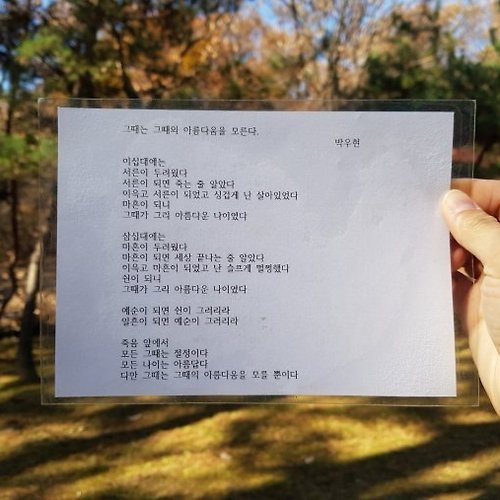 그때는 그때의 아름다움을 모른다.
박우현
이십대에는
서른이 두려웠다
서른이 되면 죽는 줄 알았다
이윽고 서른이 되었고 싱겁게 난 살아있었다
마흔이 되니
그때가 그리 아름다운 나이였다
삼십대에는
마흔이 두려웠다
마흔이 되면 세상 끝나는 줄 알았다
이윽고 마흔이 되었고 난 슬프게 멀쩡했다
쉰이 되니
그때가 그리 아름다운 나이였다
예순이 되면 쉰이 그러리라
일흔이 되면 예순이 그러리라
죽음 앞에서
모든 그때는 절정이다
모든 나이는 아름답다
다만 그때는 그때의 아름다움을 모를 뿐이다